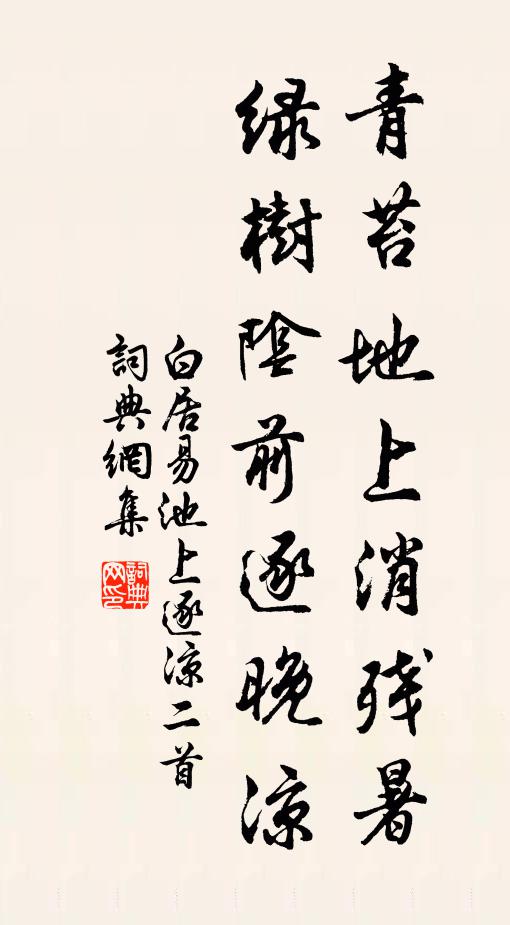 青苔地上消残暑
绿樹陰前逐晚凉
白居易池上逐凉二首
詞典網集
詞典
网印